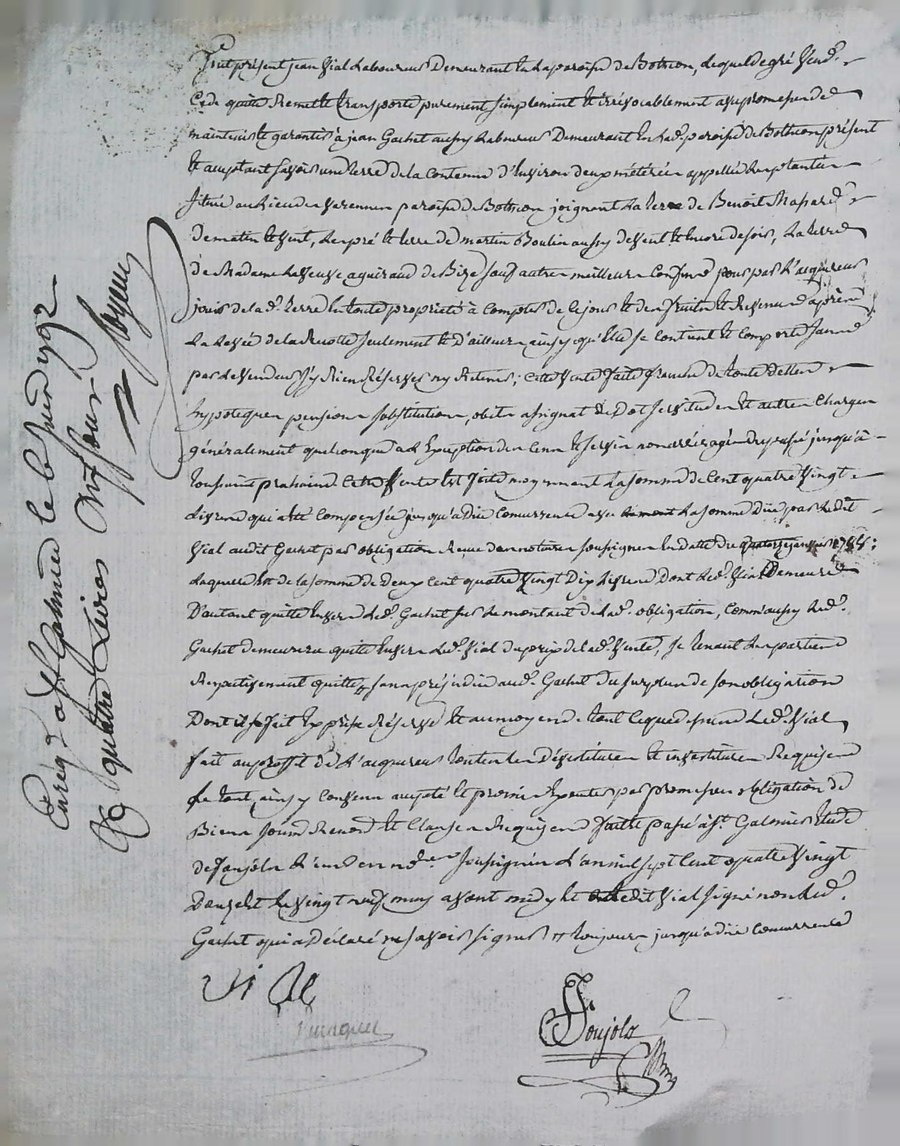 Fut présent jean Vial Laboureur Demeurant En La paroisse de Botheon, Lequel de gré Vend
Cede quitte Remet et transporte purement simplement et irrévocablement avec promesse de
maintenir et garantir à jean Gachet aussy Laboureur Demeurant En Lad. paroisse de Bothéon présent
Et acceptant savoir une terre de la Contenue d'Environ deux métérée appellée
situé au Lieu de Varennes paroisse de Bothéon joignant La terre de Benoit
de matin et vent, Le pré et terre de martin Boulin aussy de vent et Encore de soir, La terre
de Madame La Veuve aguiraud de Bize sauf autre meilleur Confin pour par L'acquereur
jouir de lad. terre En toute propriété à Compter de ce jour et des fruits et Revenus après
La Levée de la Recolte seulement et D'ailleurs ainsy qu'Elle se Contient et Comporte sans
par Le Vendeur s'y Rien Réserver ny Retenir; Cette Vente faite franche de toute dettes
hypoteques pension substitution, obits assignat de Dot servitudes Et autres Charges
généralement quelconques à L'Exception des Cens et servis non arréragés du passé jusqu'à
toussaint prochaine Cette Vente Est faite moyennant La somme de Cent quatre Vingt
Livres qui a Eté Compensée jusqu'à düe Concurrence avec La somme düe par Ledit
Vial audit Gachet par obligation Reçue du notaire soussigné En datte du quatorze janvier
Laquelle Est de la somme de Deux Cent quatre Vingt Dix Livres Dont Led. Vial Demeure
D'autant quitte Envers Led. Gachet sur Le montant de Lad. obligation, Comm'aussy Led.
Gachet demeurera quitte Envers Led. Vial du prix de lad. Vente, se tenant Les parties
Respectivement quittes sans préjudice aud. Gachet du surplus de son obligation
Dont il se fait Expresse Réserve Et au moyen de tout Ce que dessus Led. Vial
fait au proffit de L'acquereur toutes Les Dévestiture Et investiture Requises
Le tout ainsy Convenu accepté Et promis Executer par promesse obligation de
Biens soumis Renon. Et Clauses Requises fait et passé à St. Galmier Etude
de Panjola L'un des no.res soussignés L'an mil sept Cent quatre Vingt
Douze Et Le Vingt neuf may avant midy Et Ledit Vial signé non Led.
Gachet qui a Déclaré ne savoir signer toujours jusqu'à düe Concurrence
Vial
Enreg. à St Galmier le 6 juin 1792
R quatre Livres Dix sous